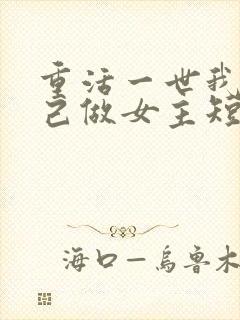 重活一世我
己做女主短
海口—乌鲁木